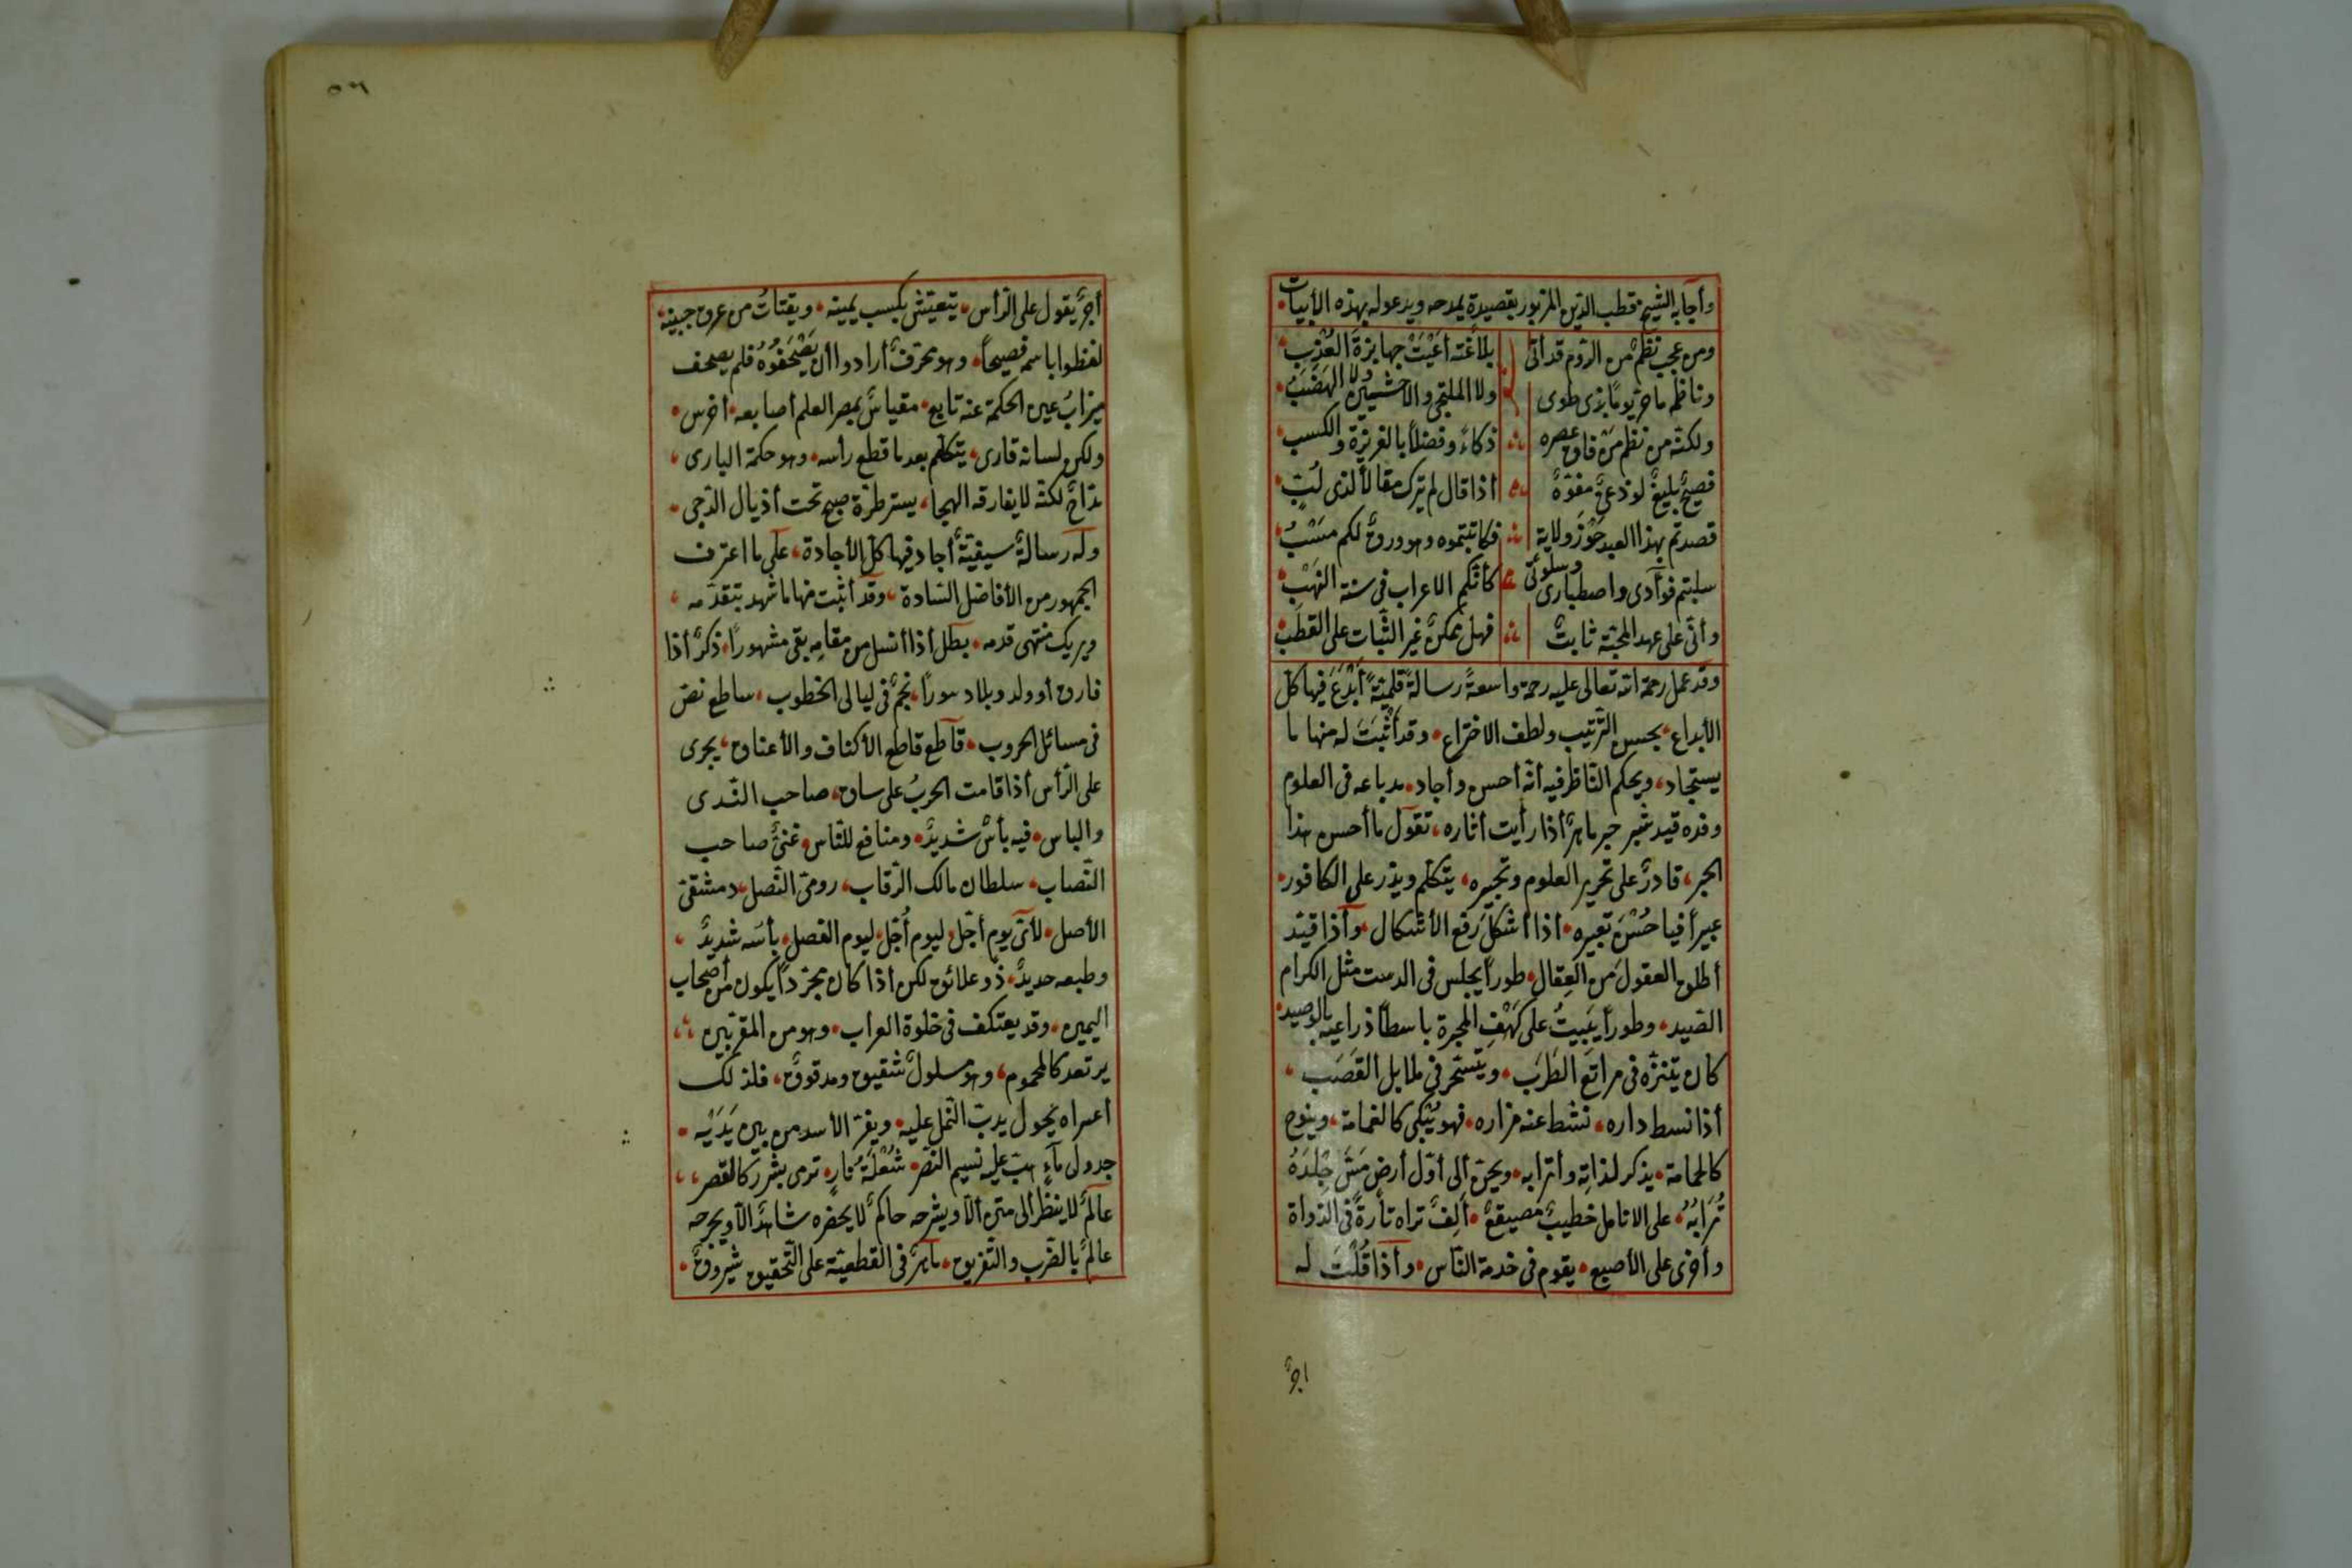 وأجابه الشيخ قطب الدين المزبور بقصيدة يمدحه ويدعو له بهذه الأبيات
ومن عجب نظم من الروم قد أتى بلاغته أعيت جهابزة العرب
وناظمه ما حز يوما بذى طوى ولا الملتقى والاخشبين ولا الهضب
ولكنه من نظم من فاق عصره ذكاء وفضلا بالغريزة والكسب
فصيح بليغ لوذعى مفوه أذا قال لم يترك مقالا لذى لب
قصدتم بهذا العبد حوز ولاية فكاتبتموه وهو ورق لكم مسب
سلبتم فوآدى واصطبارى وسلوتى كأنكم الاعراب فى سنة النهب
وأنى على عهد المحبة ثابت فهل يمكن غير الثبات على القطب
وقد عمل رحمة الله تعالى عليه رحمة واسعة رسالة قلمية أبدع فيها كل
الأبداع بحسن الترتيب ولطف الاختراع وقد أثبت له منها ما
يستجاد ويحكم الناظر فيه أنه أحسن وأجاد مد باعه فى العلوم
وقده قيد شبر حبر ماهر أذا رأيت أثاره تقول ما أحسن هذا
الحبر قادر على تحرير العلوم وتحبيره يتكلم ويذر على الكافور
عبيرا فيا حسن تعبيره أذا أشكل رفع الأشكال وأذا قيد
أطلق العقول من العقال طورا يجلس فى الدست مثل الكرام
الصيد وطورا يبيت على كهف المحبرة باسطا ذراعيه بالوصيد
كان يتنزه فى مراتع الطرب ويتبختر فى غلايل القصب
أذا نسط داره نشط عنه مزاره فهو يبكى كالغمامة وينوح
كالحمامة يذكر لذاته وأترابه ويحن ألى أول أرض مس جلده
ترابه على الانامل خطيب مصقع ألف تراه تارة فى الدواة
وأخرى على الأصبع يقوم فى خدمة الناس وأذا قلت له
اجر
٥٦
أجر يقول على الرأس يتعيش بكسب يمينه ويقتات من عرق جبينه
لفظوا باسمه فصيحا وهو محرف أرادوا أن يصحفوه فلم يصحف
ميزاب عين الحكمة عنه تابع مقياس بمصر العلم أصابعه أخرس
ولكن لسانه قارى يتكلم بعد ما قطع رأسه وهو حكمة البارى
مداح لكنه لا يفارقه الهجا يستر طرة صبح تحت أذيال الدجى
وله رسالة سيفية أجاد فيها كل الأجادة على ما اعترف
الجمهور من الأفاضل السادة وقد أثبت منها ما شهد بتقدمه
ويريك منتهى قدمه بطل أذا أنسل من مقامه بقى مشهورا ذكر أذا
فارق أو ولد وبلا د سورا نجم فى ليالى الخطوب ساطع نص
فى مسائل الحروب قاطع قاطع الأكتاف والأعناق يجرى
على الرأس أذا قامت الحرب على ساق صاحب الندى
والباس فيه بأس شديد ومنافع للناس غنى صاحب
النصاب سلطان مالك الرقاب رومى النصل دمشقى
الأصل لأتى يوم أجل ليوم أجل ليوم الفصل بأسه شديد
وطبعه حديد ذو علائق لكن أذا كان مجردا يكون من أصحاب
اليمين وقد يعتكف فى خلوة القراب وهو من المقربين
يرتعد كالمحموم وهو مسلول شقيق ومدقوق فلذلك
أعتراه نحول يدب النمل عليه ويفر الأسد من بين يديه
جدول ماء هب عليه نسيم النصر شعلة نار ترمى بشرر كالقصر
عالم لا ينظر ألى متن ألا ويشرحه حاكم لا يحضره شاهد ألا ويجرحه
عالم بالضرب والتفريق ماهر فى القطعية على التحقيق شيروق